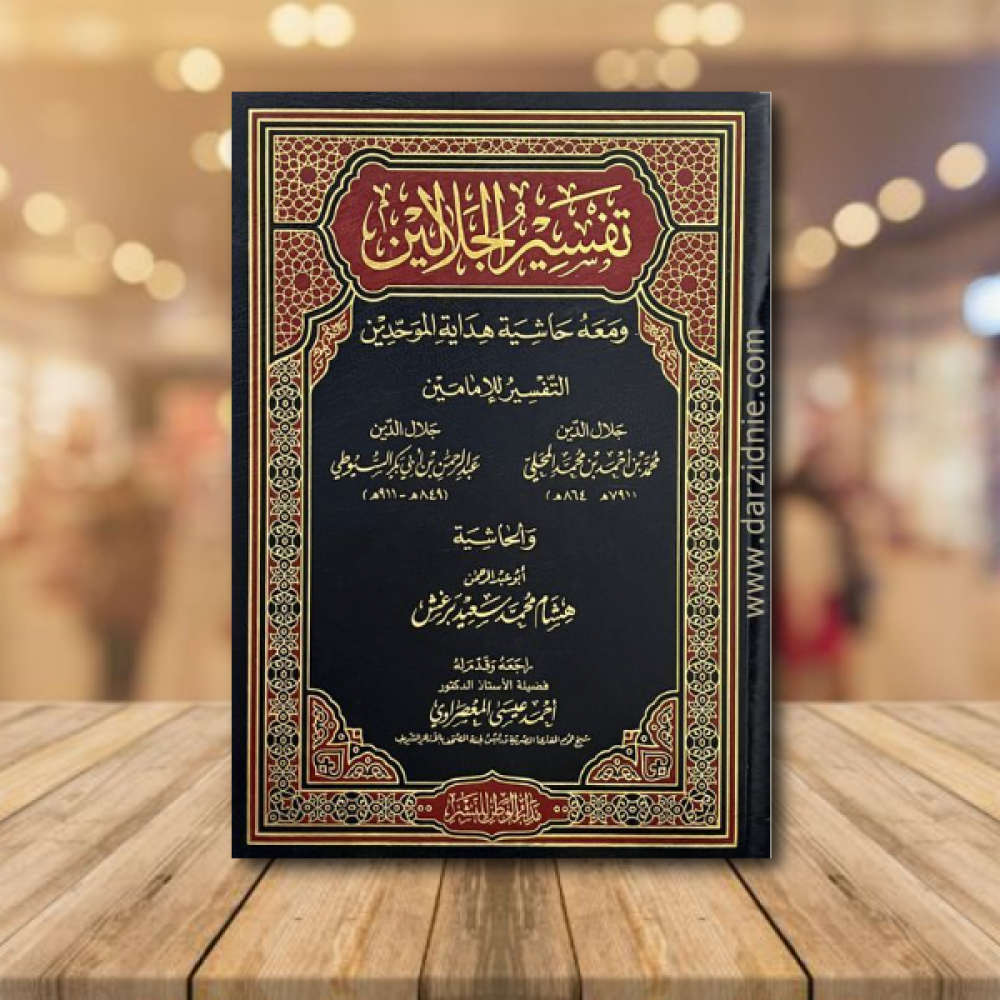 تفسير الجلالين
ومعه حاشية هداية الموحدين
التفسير للإمامين
جلال الدين
محمد بن أحمد بن محمد المحلي
٧٩١١هـ ٨٦٤هـ)
جلال الدين
عبد الرحمن بن أبي بكر السيوطي
(٨٤٩هـ - ٩١١هـ)
والحاشية
أبو عبد الرحمن
هشام محمد سعيد برغش
راجعه وقدم له
فضيلة الأستاذ الدكتور
أحمد عيسى المعصراوي
شيخ عموم المقارئ المصرية ورئيس لجنة المصحف بالأزهر الشريف
مدار الوطن للنشر
www.darzidnie.com